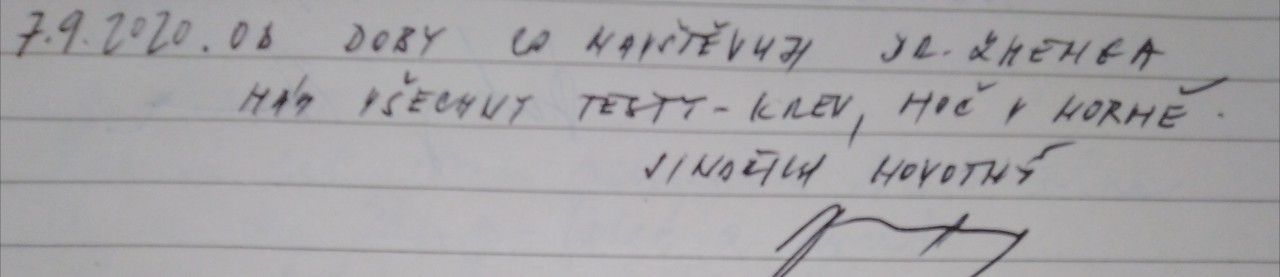 7.9.2020. OD DOBY CO NAVŠTĚVUJI DR. ZHENGA
MÁM VŠECHNY TESTY - KREV, MOČ V NORMĚ.
JINDŘICH NOVOTNÝ